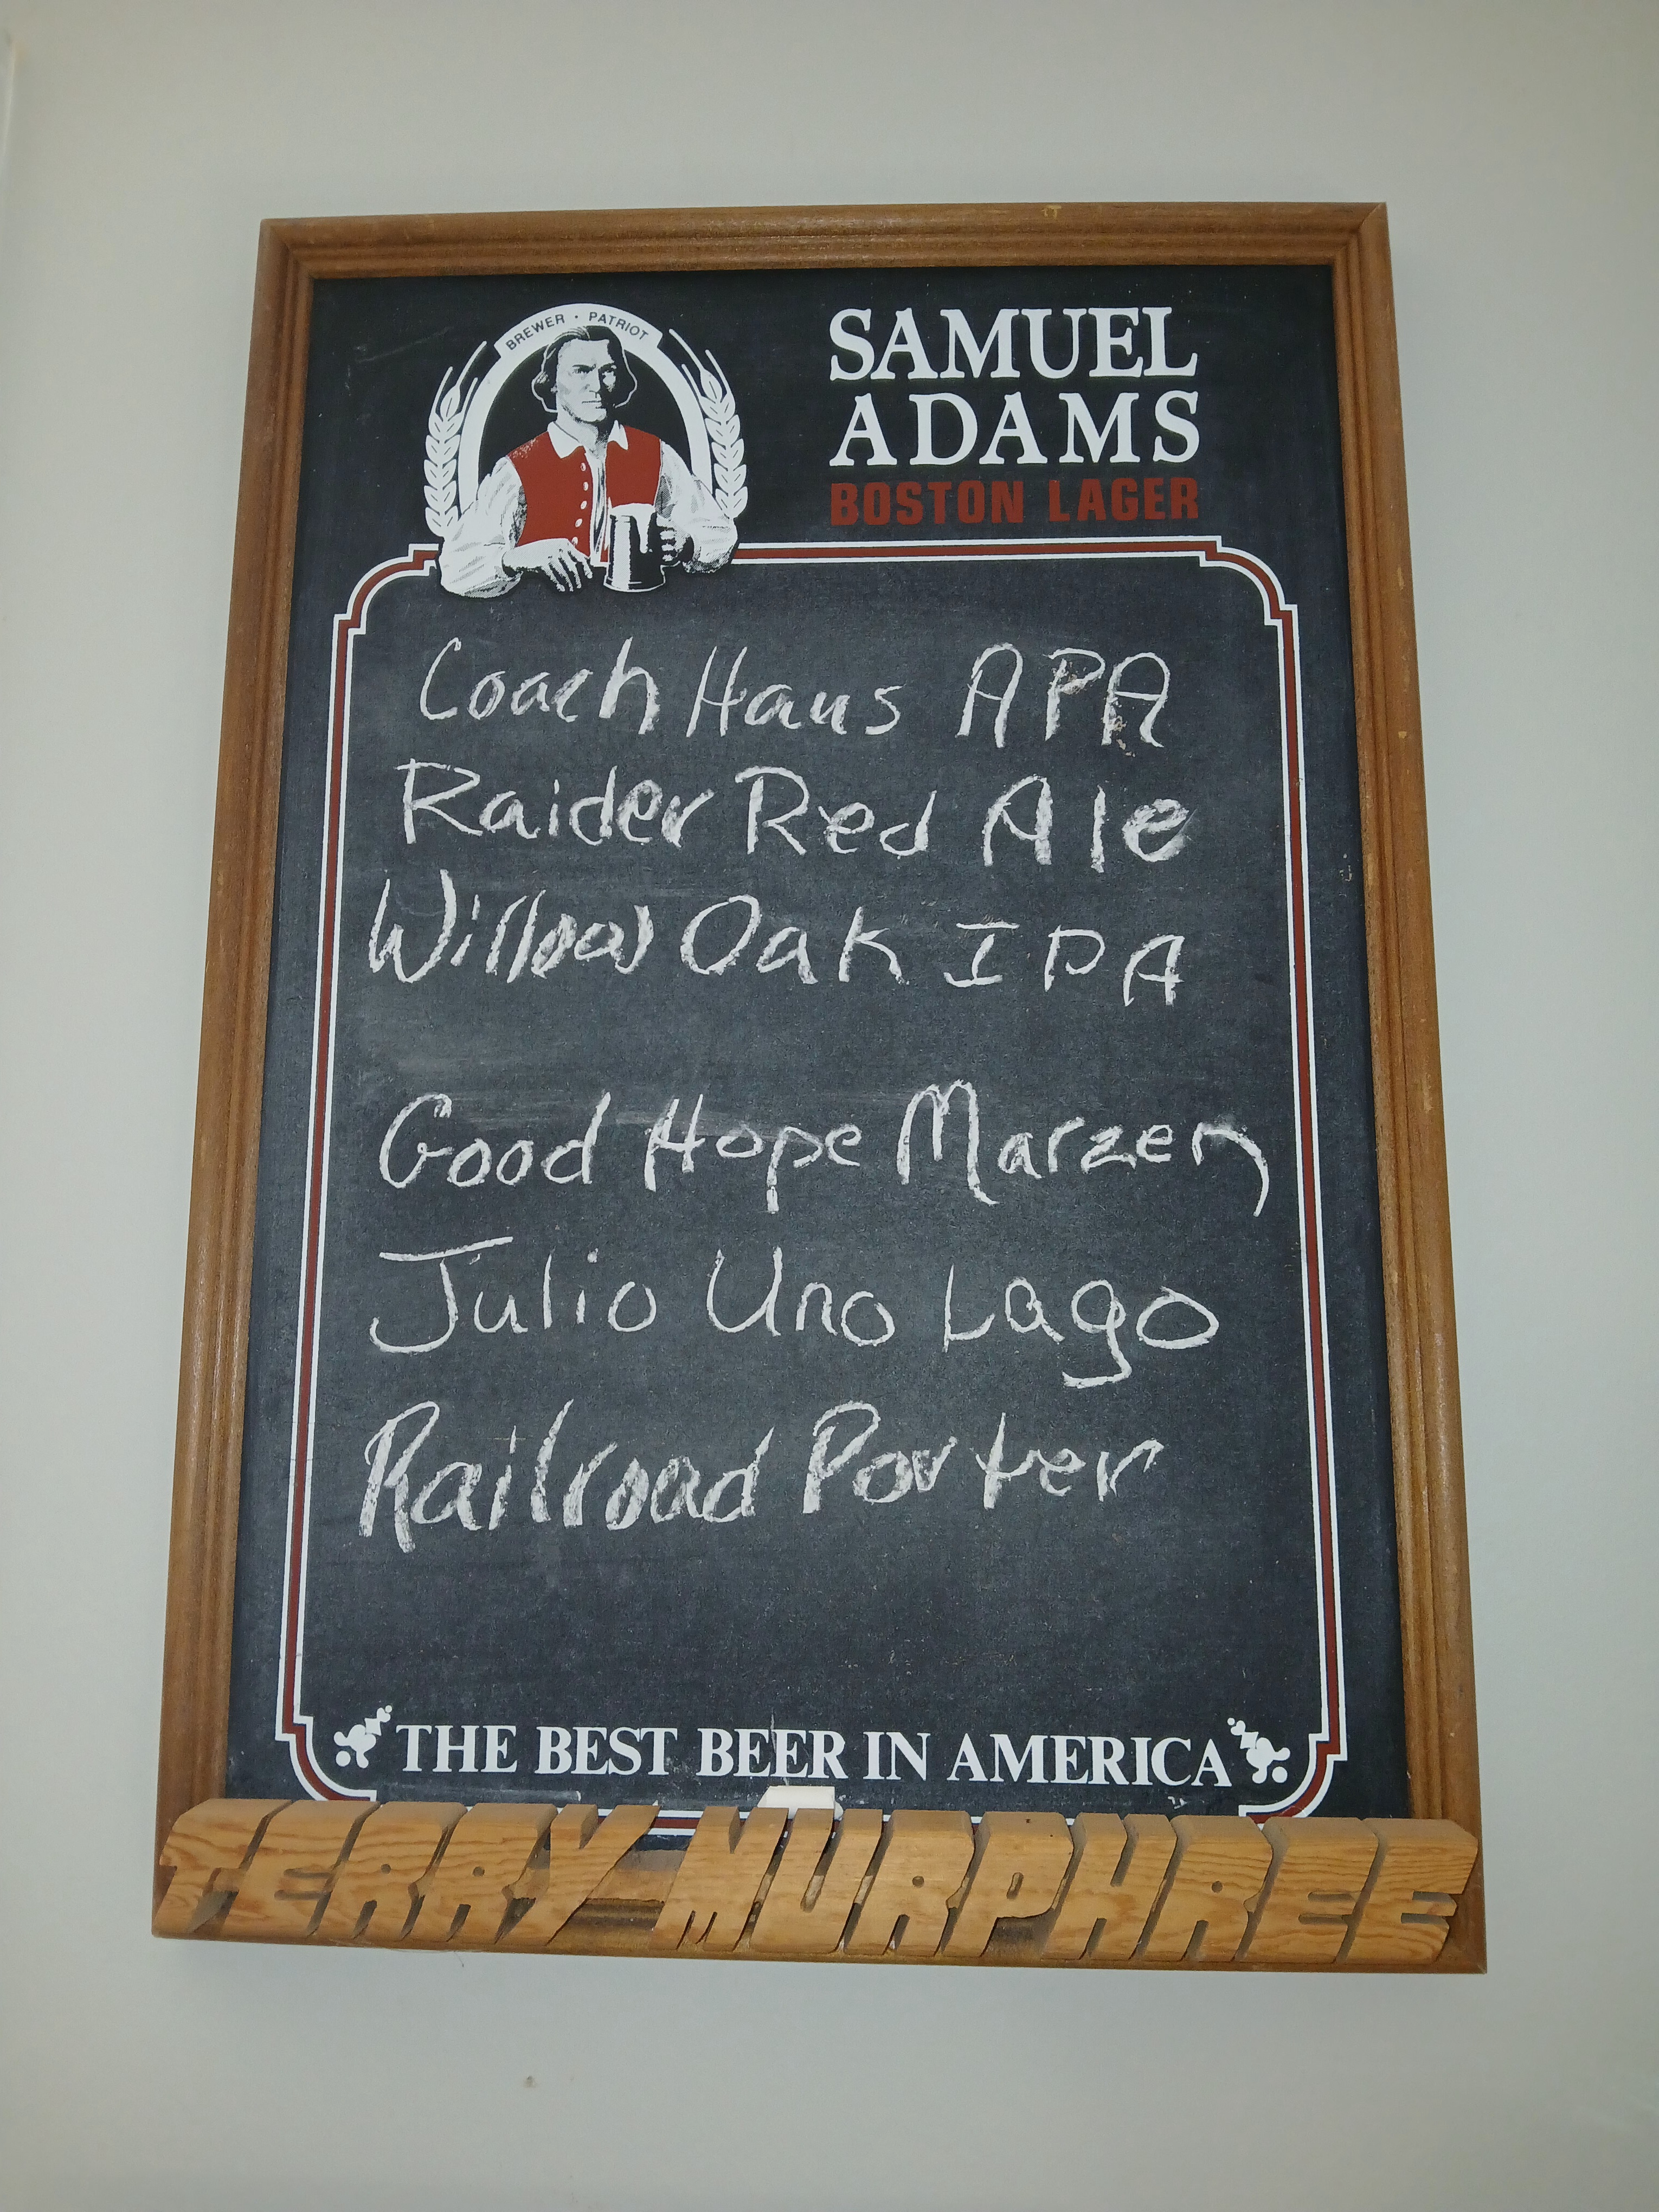 BREWER • PATRIOT
SAMUEL
ADAMS
BOSTON LAGER
Coach Haus APA
Raider Red Ale
Willow Oak IPA
Good Hope Marzen
Julio Uno Lago
Railroad Porter
THE BEST BEER IN AMERICA
TERRY MURPHREE